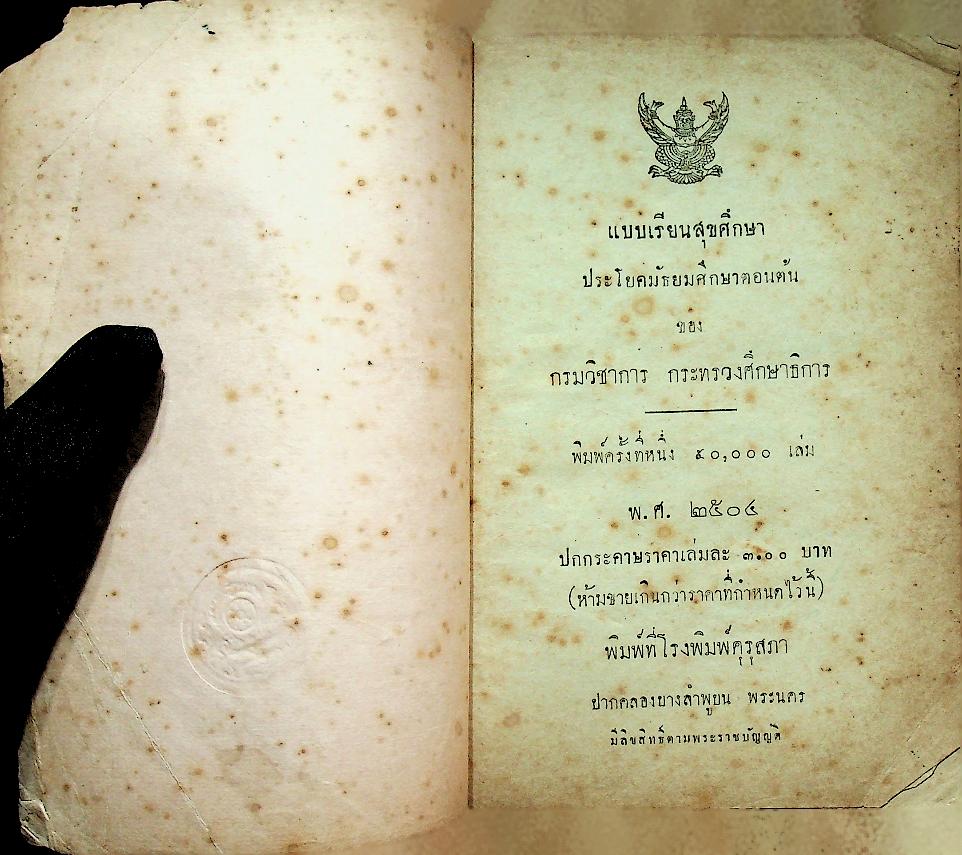 แบบเรียนสุขศึกษา
ประโยคมัธยมศึกษาตอนต้น
ของ
กรมวิชาการ กระทรวงศึกษาธิการ
พิมพ์ครั้งที่หนึ่ง ๕๐,๐๐๐ เล่ม
พ.ศ. ๒๕๐๔
ปกกระดาษราคาเล่มละ ๓.๐๐ บาท
(ห้ามขายเกินกว่าราคาที่กำหนดไว้นี้)
พิมพ์ที่โรงพิมพ์คุรุสภา
ปากคลองบางลำพูบน พระนคร
มีลิขสิทธิ์ตามพระราชบัญญัติ